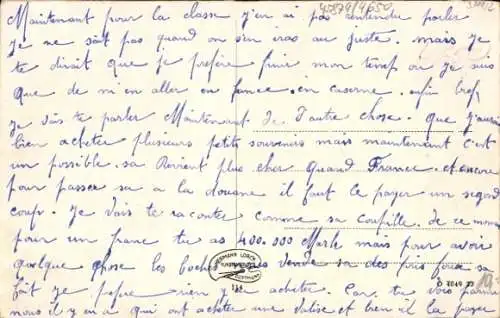 42879/4650
Maintenant pour la classe j'en ai pas entendue parler
Je ne sait pas quand on s'en iras au juste. mais je
te dirait que je prefere finir mon temp ou je suis
que de m'en aller en france. en caserne. enfin bref
je vais te parler Maintenant de l'autre chose. que j'aurai
bien acheter plusieurs petits souvenirs mais maintenant c'est
un possible. sa Revient plus cher quand France. et encore
pour passer sa a la douane il faut le payer un segond
coup. Je vais te raconter comme sa coupille. de ce moment
pour un franc tu as 400.000 Mark mais pour avoir
quelque chose les boches vende sa des fois
fait je prefere rien acheter. Car tu vois parmi
nous il y en a qui ont acheter une valise et bien il la payer
HERMANS LORCH
DORTMUND